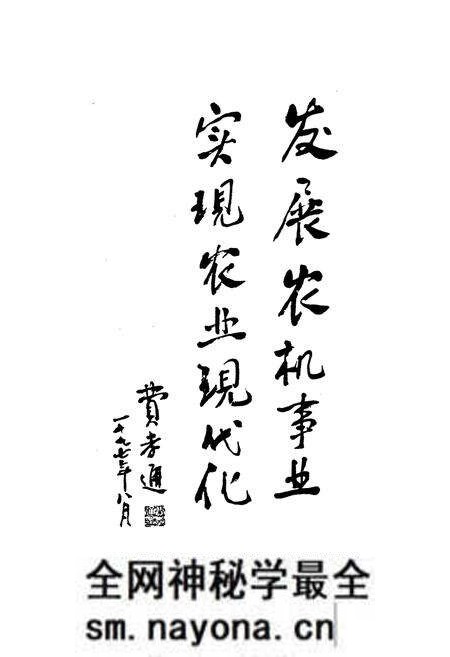 发展农机事业
实现农业现代化
費孝通
一九九七年八月
全网神秘学最全
sm.nayona.cn